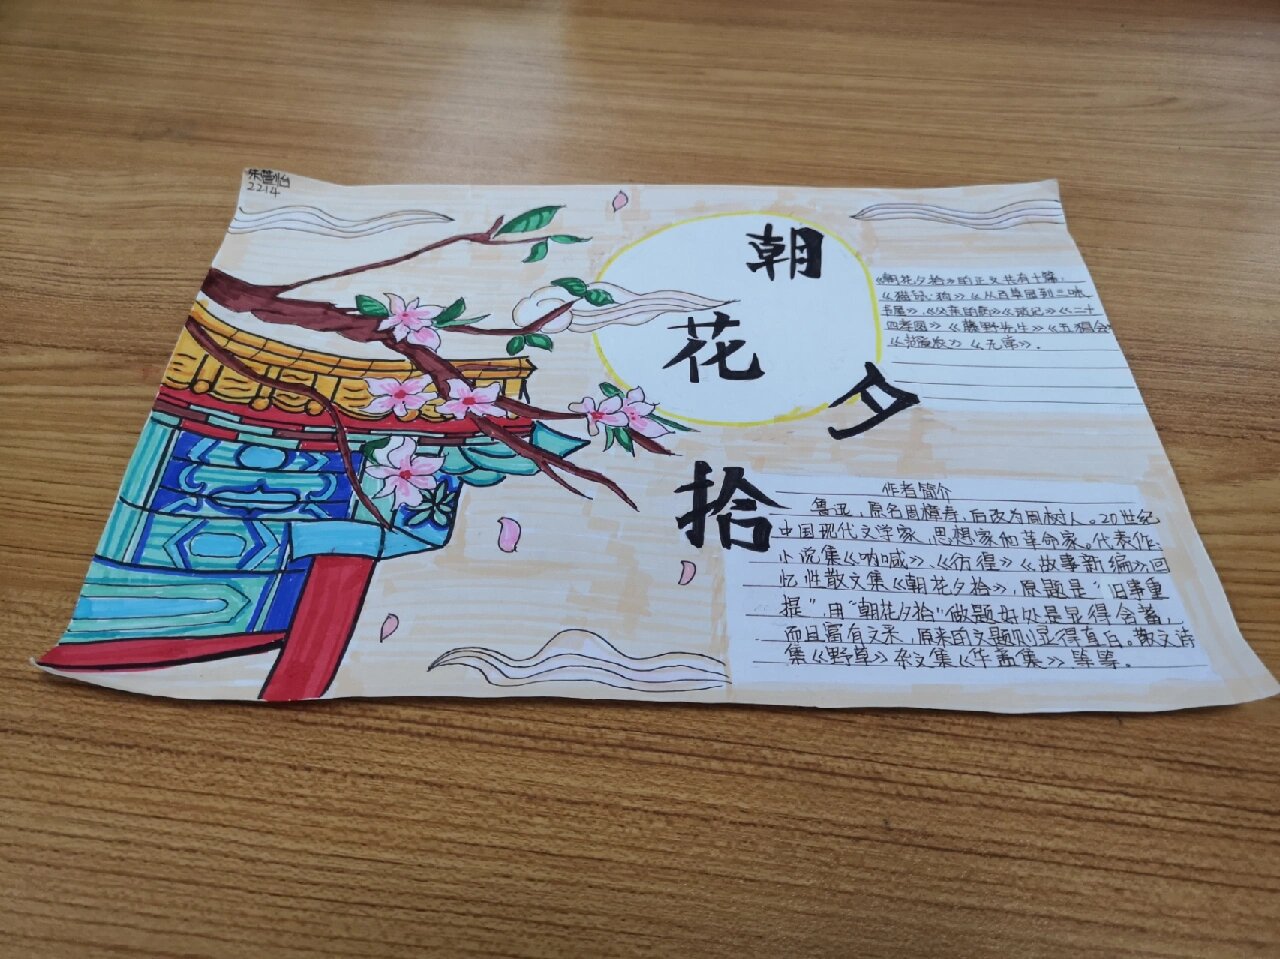 2214
朝
花
夕
拾
《朝花夕拾》的正文共有十篇,
《猫·狗·鼠》《从百草园到三味
书屋》、《父亲的病》《琐记》《二十
四孝图》《藤野先生》《五猖会》
《范爱农》《无常》.
作者简介
鲁迅,原名周樟寿,后改为周树人。20世纪
中国现代文学家、思想家和革命家。代表作、
小说集《呐喊》、《彷徨》《故事新编》回
忆性散文集《朝花夕拾》,原题是"旧事重
提"用"朝花夕拾"做题好处是显得含蓄,
而且富有文采,原来的文题则显得直白。散文诗
集《野草》杂文集《华盖集》等等。